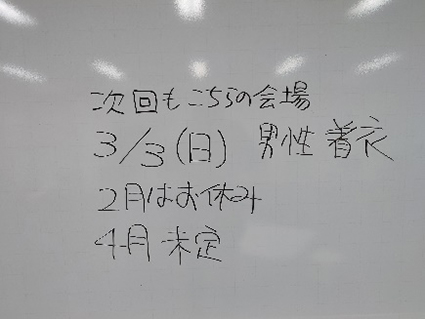 次回もこちらの会場
3/3(日) 男性 着衣
2月はお休み
4月 未定